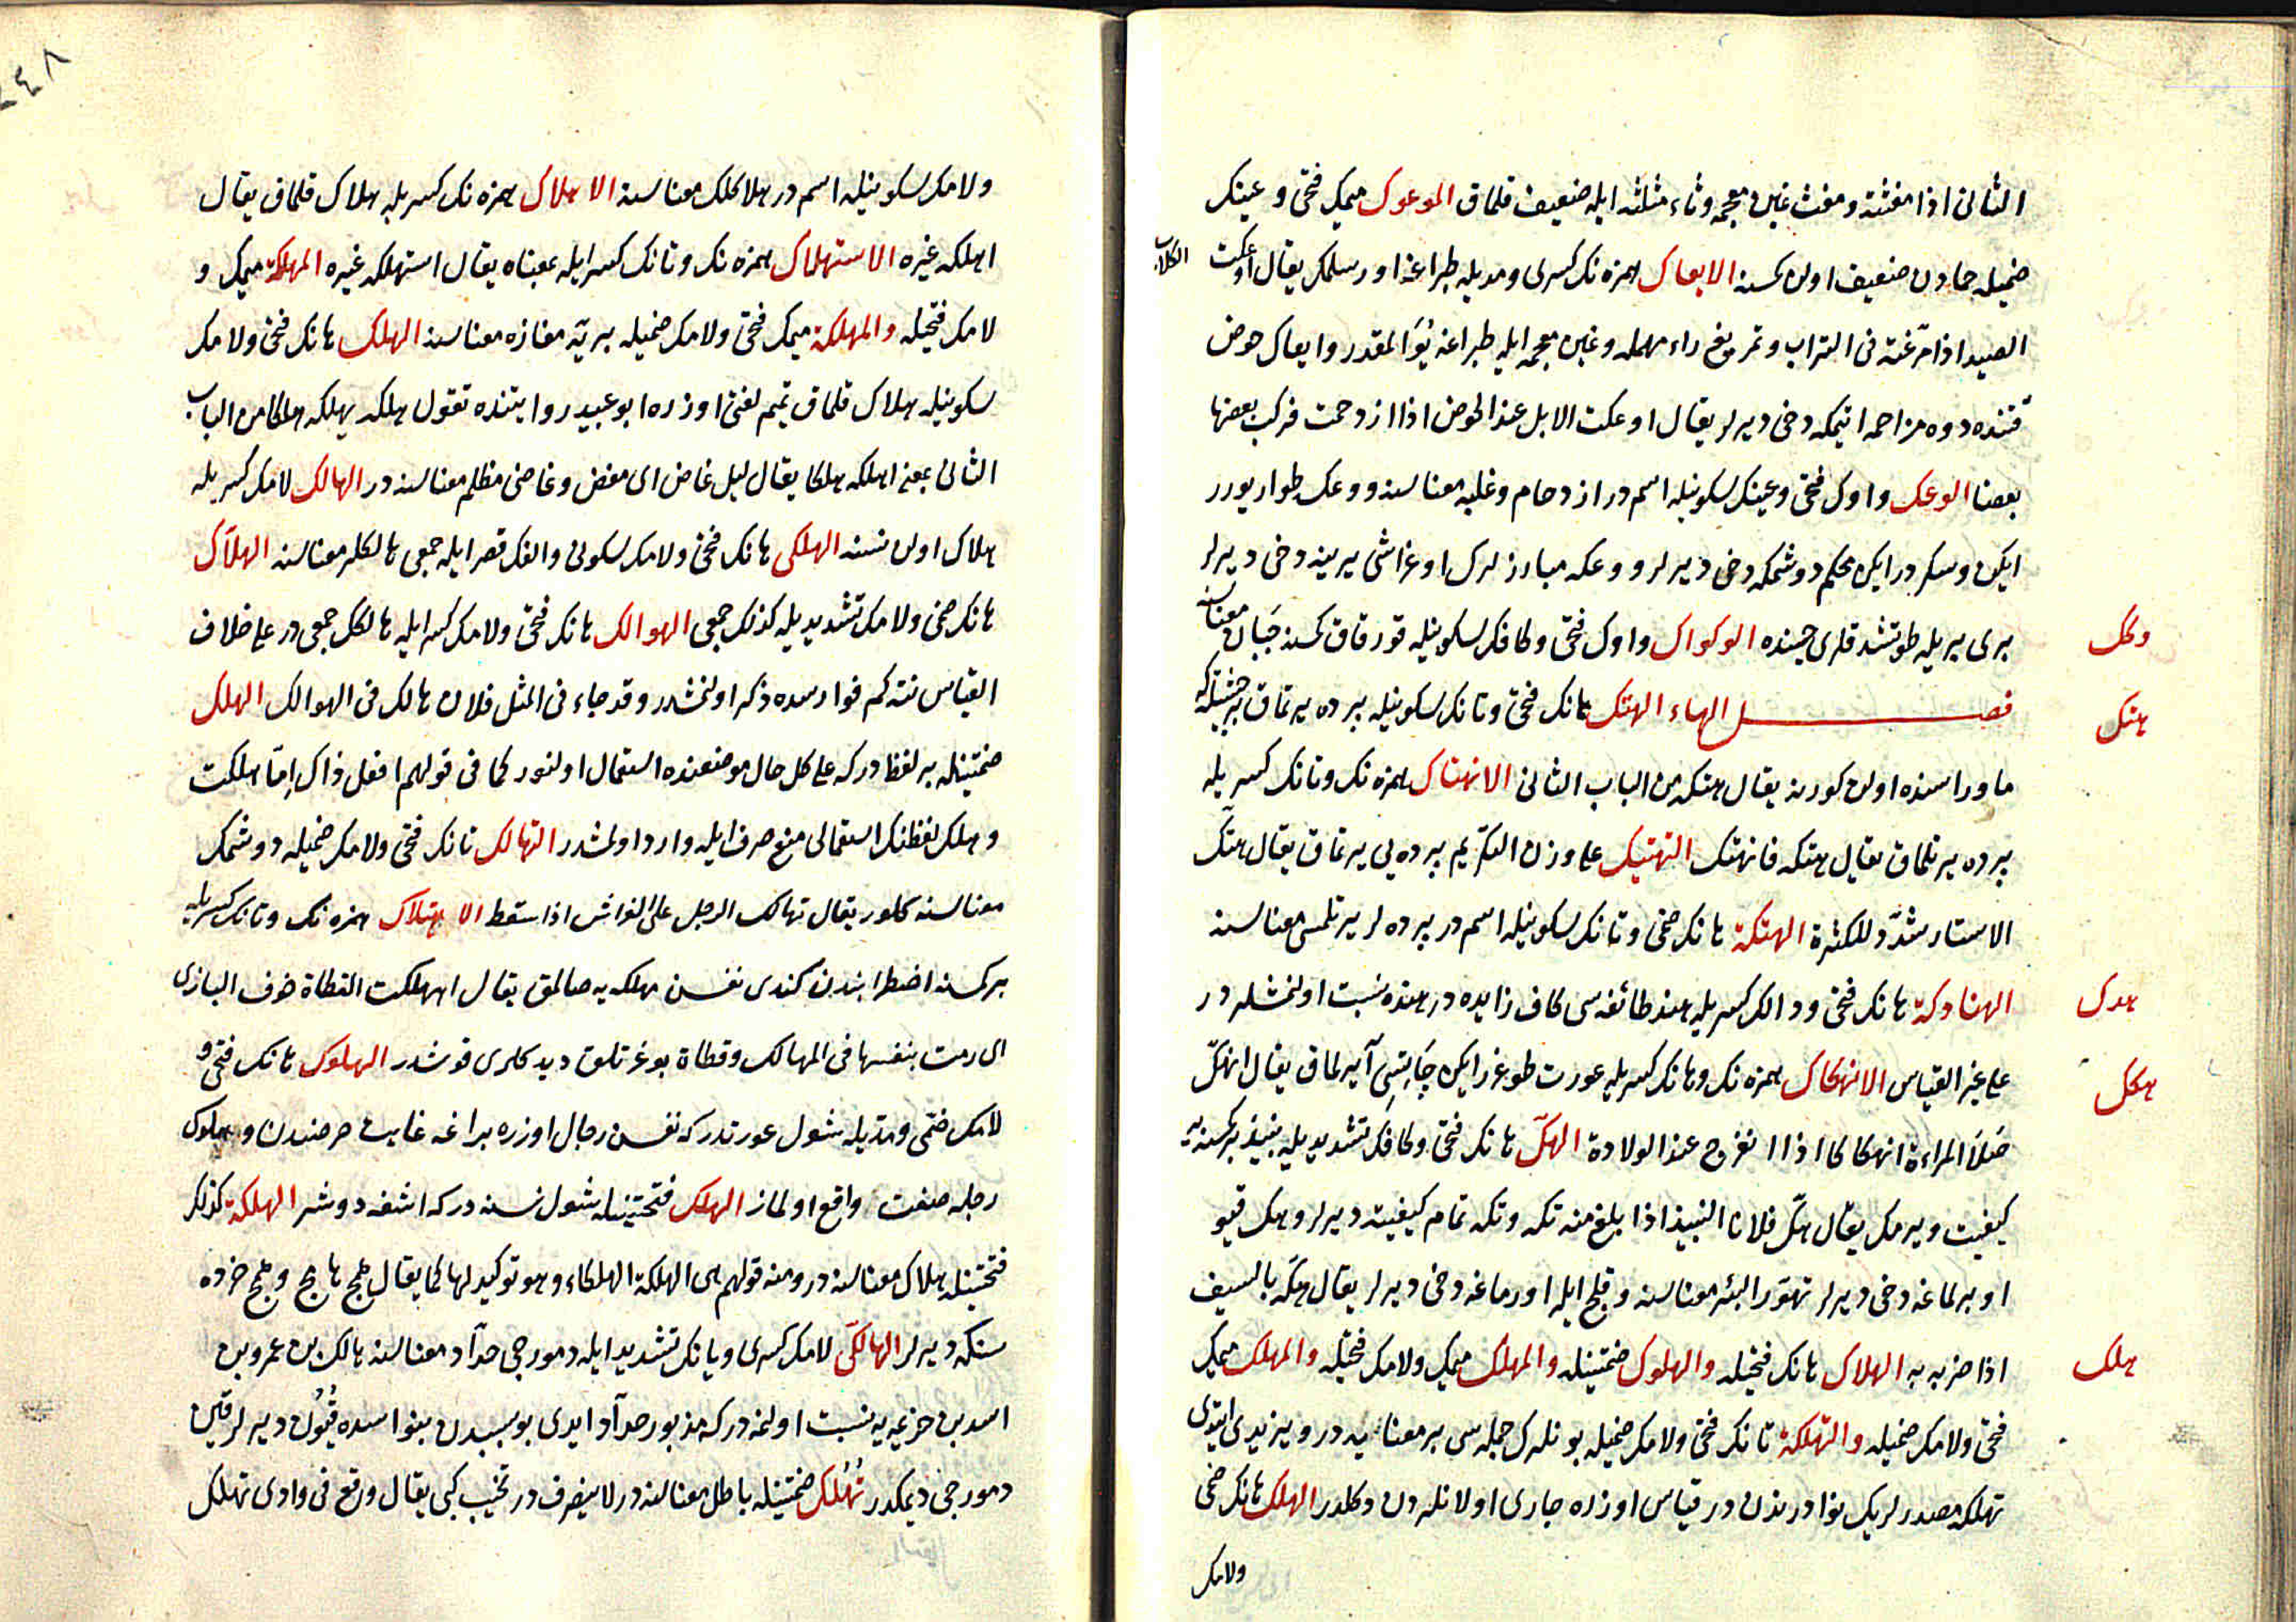 الثانى اذا مغثته ومغث غين معجمه وثاء مثلثه ايله ضعيف قلماق الموعوك ميمك فتحى وعينك
ضميله حمادن ضعيف اولن كمسنه الايعاك همزه نك كسرى ومديله طپراغه اورسلمك يقال اوعكت الكلاب
الصيد اذا مرّغته فى التراب وتمريغ راء مهمله وغين معجمه ايله طپراغه يُوَالمقدر وايعاك حوض
قتنده دوه مزاحمه ايتمكه دخى ديرلر يقال اوعكت الابل عند الحوض اذا ازدحمت فركب بعضها
بعضا الوعك واوك فتحى وعينك سكونيله اسمدر ازدحام وغلبه معناسنه ووعك طوار يورر
ايكن وسكردر ايكن محكم دوشمكه دخى ديرلر ووعكه مبارزلرك اوغراشى يرينه دخى ديرلر
برى بريله طوتشدقلرى حينده الوكواك واوك فتحى وكافك سكونيله قورقاق كمسنه جَبان معناسنه
وكك
فصل الهاء الهتك هانك فتحى وتانك سكونيله پرده يرتماق برحيثيتله كه
هتك
ماوراسنده اولن كورينه يقال هتكه من الباب الثانى الانهتاك همزه نك وتانك كسريله
پرده يرتلماق يقال هتكه فانهتك التهتيك على وزن التكريم پرده يى يرتماق يقال هتّك
الاستار شدّد للكثرة الهتكة هانك ضمى وتانك سكونيله اسمدر پرده لر يرتلمسى معناسنه
الهنادكة هانك فتحى ودالك كسريله هند طائفه سى كاف زايده در هنده نسبت اولنمشلردر
هدك
على غير القياس الانهكاك همزه نك وهانك كسريله عورت طوغرر ايكن چاپتسى آيرلماق يقال انهكّ
هكك
صَلَا المراءة انهكاكا اذا انفرج عند الولادة الهكّ هانك فتحى وكافك تشديديله نبيذ بر كمسنه يه
كيفيت ويرمك يقال هكّ فلانا النبيذ اذا بلغ منه تكه وتكه تمام كيفيته ديرلر وهك قيو
اوبرلماغه دخى ديرلر تهوّر البئر معناسنه وقلج ايله اورماغه دخى ديرلر يقال هكّه بالسيف
اذا ضربه به الهلاك هانك فتحيله والهلوك ضمتينله والمهلك ميمك ولامك فتحيله والمهلك ميمك
هلك
فتحى ولامك ضميله والتهلكة تانك فتحى ولامك ضميله بونلرك جمله سى بر معنايه در ويزيدى ايتدى
تهلكه مصدرلريك نوادرندن در قياس اوزره جارى اولانلردن دكلدر الهلك هانك ضمى
ولامك
ولامك سكونيله اسمدر هلاكلك معناسنه الاهلاك همزه نك كسريله هلاك قلماق يقال
اهلكه غيره الاستهلاك همزه نك وتانك كسرايله بمعناه يقال استهلكه غيره المهلكة ميمك و
لامك فتحيله والمهلكة ميمك فتحى ولامك ضميله بريّه مفازه معناسنه الهلك هانك فتحى ولامك
سكونيله هلاك قلماق تميم لغتى اوزره ابو عبيد روايتنده تقول هلكه يهلكه هلكا من الباب
الثانى بمعنى اهلكه هلكا يقال ليل غاض اى مغض وغاضى مظلم معناسنه در الهالك لامك كسريله
هلاك اولن نسنه الهلكى هانك فتحى ولامك سكونى والفك قصرايله جمعى هالكلر معناسنه الهلّاك
هانك ضمى ولامك تشديديله كذلك جمعى الهوالك هانك فتحى ولامك كسرايله هالكك جمعى در على خلاف
القياس نته كم فوارسده ذكر اولنمشدر وقد جاء فى المثل فلان هالك فى الهوالك الهلك
ضمتينله بر لفظدر كه على كل حال موضعنده استعمال اولنور كما فى قولهم افعل ذاك اِمّا هلكت
وهلك لفظنك استعمالى منع صرف ايله وارد اولمشدر التهالك تانك فتحى ولامك ضميله دوشمك
معناسنه كلور يقال تهالك الرجل على الفراش اذا سقط الاهتلاك همزه نك وتانك كسريله
بر كمسنه اضطرابندن كندى نفسن مهلكه يه صالمق يقال اهتلكت القطاة خوف البازى
اى رمت بنفسها فى المهالك وقطاة بوغرتلق ديدكلرى قوشدر الهلوك هانك فتحى و
لامك ضمّى ومدّيله شول عورتدر كه نفسن رجال اوزره براغه غايت حرصندن وهلوك
رجله صفت واقع اولماز الهلك فتحتينله شول نسنه در كه اشغه دوشر الهلكة كذلك
فتحتينله هلاك معناسنه در ومنه قولهم هى الهلكة الهلكاء وهو توكيد لها كما يقال همج هامج وهمج خرده
سنكه ديرلر الهالكّى لامك كسرى ويانك تشديد ايله دمورجى حدّاد معناسنه هالك بن عمرو بن
اسد بن خزيمه يه نسبت اولنمه در كه مزبور حدّاد ايدى بو سببدن بنو اسده قُيُون ديرلر قين
دمورجى ديمكدر تُهُلّك ضمتينله باطل معناسنه در لاينصرف در تخيب كبى يقال وقع فى وادى تهلك